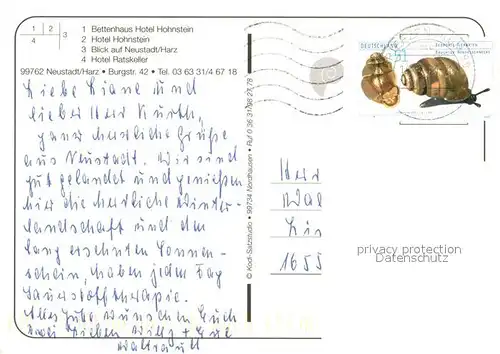 1 2
4 3
1 Bettenhaus Hotel Hohnstein
2 Hotel Hohnstein
3 Blick auf Neustadt/Harz
4 Hotel Ratskeller
99762 Neustadt/Harz • Burgstr. 42 • Tel. 03 63 31/4 67 18
Liebe Liane und
lieber Herr Kurth,
ganz herzliche Grüße
aus Neustadt. Wir sind
gut gelandet und genießen
hier die herrliche Winter-
landschaft und den
lang ersehnten Sonnen-
schein, haben jeden Tag
Sauerstofftherapie.
Alles Gute wünschen Euch
zwei Lieben Willy +
Waltraut
© Koof-Satzstudio • 99734 Nordhausen • Ruf 0 36 31/98 27 78
DEUTSCHLAND
Herr
Wal
1655
privacy protection
Datenschutz